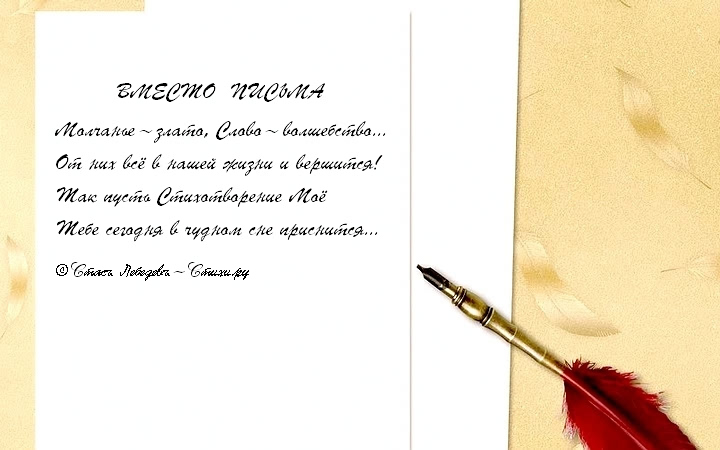 ВМЕСТО ПИСЬМА
Молчанье ~ злато, Слово ~ волшебство...
От них всё в нашей жизни и вершится!
Так пусть Стихотворение Моё
Тебе сегодня в чудном сне приснится...
© Стасъ Лебедевъ ~ Стихи.ру